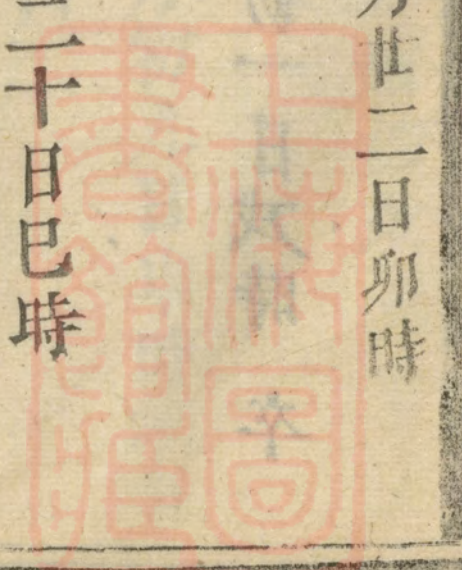 廿二日卯時
二十日巳時
上海圖
書館藏